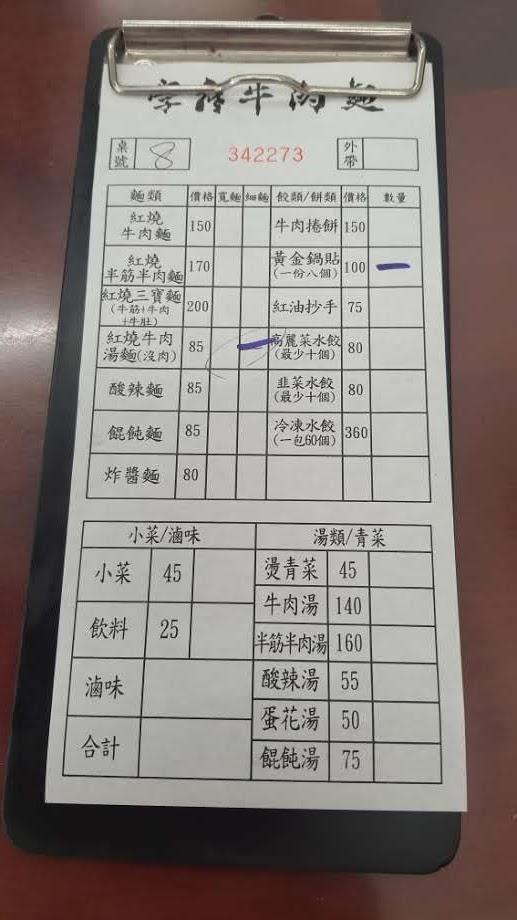 牛肉麵
桌號 8 342273 外帶
麵類 價格 寬麵 細麵 餃類/餅類 價格 數量
紅燒牛肉麵 150 牛肉捲餅 150
紅燒半筋半肉麵 170 黃金鍋貼(一份八個) 100
紅燒三寶麵(牛筋+牛肉+牛肚) 200 紅油抄手 75
紅燒牛肉湯麵(沒肉) 85 高麗菜水餃(最少十個) 80
酸辣麵 85 韭菜水餃(最少十個) 80
餛飩麵 85 冷凍水餃(一包60個) 360
炸醬麵 80
小菜/滷味
小菜 45
飲料 25
滷味
合計
湯類/青菜
燙青菜 45
牛肉湯 140
半筋半肉湯 160
酸辣湯 55
蛋花湯 50
餛飩湯 75